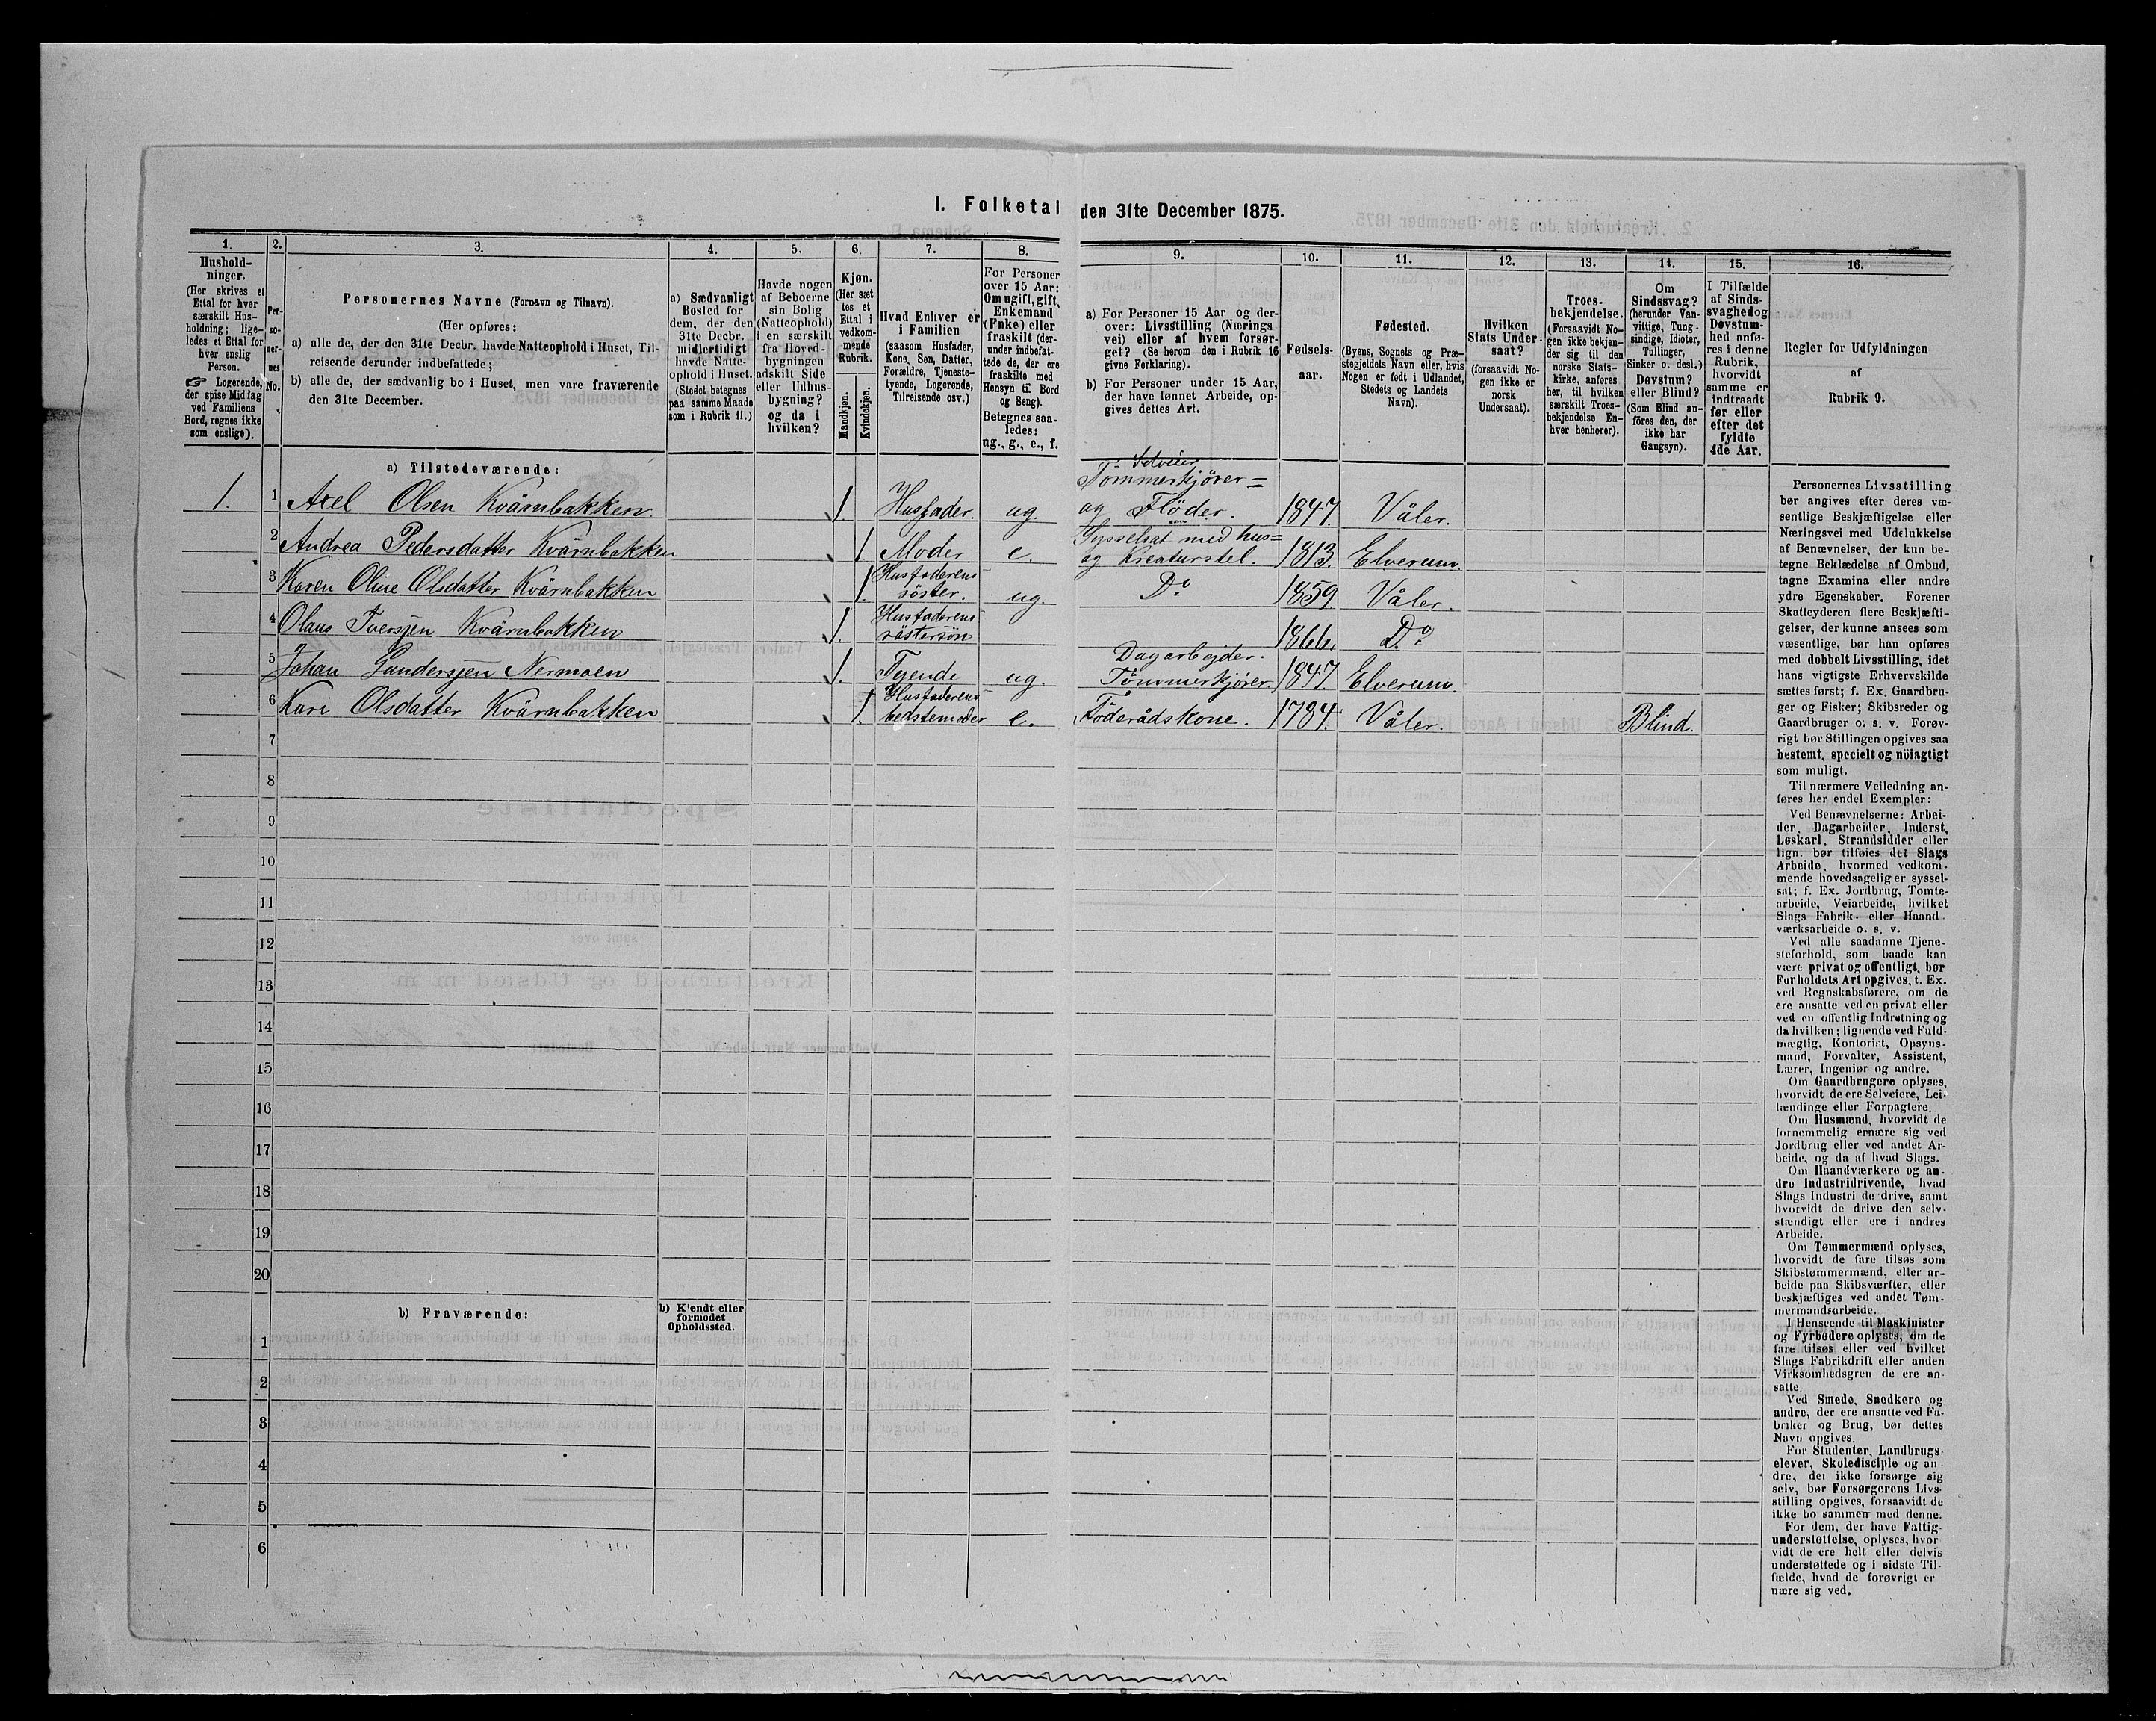 I. Folketal den 31te December 1875.
1.
Hushold-
ninger.
(Her skrives et
Ettal for hver
særskilt Hus-
holdning; lige-
ledes et Ettal for
hver enslig
Person.
☞ Logerende,
der spise Middag
ved Familiens
Bord, regnes ikke
som enslige).
2.
Per-
so-
ner-
nes
No.
3.
Personernes Navne (Fornavn og Tilnavn).
(Her opføres:
a) alle de, der den 31te Decbr. havde Natteophold i Huset, Til-
reisende derunder indbefattede;
b) alle de, der sædvanlig bo i Huset, men vare fraværende
den 31te December.
4.
a) Sædvanligt
Bosted for
dem, der den
31te Decbr.
midlertidigt
havde Natte-
ophold i Huset.
(Stedet betegnes
paa samme Maade
som i Rubrik 11.)
5.
Havde nogen
af Beboerne
sin Bolig
(Natteophold)
i en særskilt
fra Hoved-
bygningen
adskilt Side
eller Udhus-
bygning?
og da i
hvilken?
6.
Kjøn.
(Her sæt
tes et
Ettal i
vedkom-
mende
Rubrik.
Mandkjøn.
Kvindekjøn.
7.
Hvad Enhver er
i Familien
(saasom Husfader,
Kone, Søn, Datter,
Forældre, Tjeneste-
tyende, Logerende,
Tilreisende osv.)
8.
For Personer
over 15 Aar:
Om ugift, gift,
Enkemand
(Enke) eller
fraskilt (der-
under indbefat-
tede de, der ere
fraskilte med
Hensyn til Bord
og Seng).
Betegnes saa-
ledes:
ug., g., e., f.
9.
a) For Personer 15 Aar og der-
over: Livsstilling (Nærings
vei) eller af hvem forsør-
get? (Se herom den i Rubrik 16
givne Forklaring).
b) For Personer under 15 Aar,
der have lønnet Arbeide, op-
gives dettes Art.
10.
Fødsels-
aar.
11.
Fødested.
(Byens, Sognets og Præ-
stegjeldets Navn eller, hvis
Nogen er født i Udlandet,
Stedets og Landets
Navn).
12.
Hvilken
Stats Under-
saat?
(forsaavidt No-
gen ikke er
norsk
Undersaat).
13.
Troes-
bekjendelse.
(Forsaavidt No-
gen ikke bekjen-
der sig til den
norske Stats-
kirke, anføres
her, til hvilken
særskilt Troes-
bekjendelse En-
hver henhører).
14.
Om
Sindssvag?
(herunder Van-
vittige, Tung-
sindige, Idioter,
Tullinger,
Sinker o. desl.)
Døvstum?
eller Blind?
(Som Blind an-
føres den, der
ikke har
Gangsyn).
15.
I Tilfælde
af Sinds-
svaghed og
Døvstum-
hed anfø-
res i denne
Rubrik,
hvorvidt
samme er
indtraadt
før eller
efter det
fyldte
4de Aar.
16.
Regler før Udfyldningen
af
Rubrik 9.
a) Tilstedeværende:
1. 1 Axel Olsen Kvärnbakken. 1. Husfader. ug. Selveier, Tömmerkjører= og Flöder. 1847. Våler.
2 Andrea Pedersdatter Kvärnbakken 1. Moder e. Sysselsat med hus= og Kreaturstel. 1813. Elverum.
3 Karen Oline Olsdatter Kvärnbakken 1. Husfaderens söster. ug. Do 1859. Våler.
4 Olaus Iversen Kvärnbakken 1. Husfaderens söstersön 1866. Do
5 Johan Gundersen Nermoen 1. Tyende ug. Dagarbejder. Tömmerkjører. 1847. Elverum.
6 Kari Olsdatter Kvärnbakken 1. Husfaderens bedstemoder e. Föderådskone. 1784. Våler. Blind.
7
8
9
10
11
12
13
14
15
16
17
18
19
20
b) Fraværende:
b) Kjendt eller
formodet
Opholdssted.
1
2
3
4
5
6
Personernes Livsstilling
bør angives efter deres væ-
sentlige Beskjæftigelse eller
Næringsvei med Udelukkelse
af Benævnelser, der kun be-
tegne Beklædelse af Ombud,
tagne Examina eller andre
ydre Egenskaber. Forener
Skatteyderen flere Beskjæfti-
gelser, der kunne ansees som
væsentlige, bør han opføres
med dobbelt Livsstilling, idet
hans vigtigste Erhvervskilde
sættes først; f. Ex. Gaardbru-
ger og Fisker; Skibsreder og
Gaardbruger o. s. v. Forøv-
rigt bør Stillingen opgives saa
bestemt, specielt og nöiagtigt
som muligt.
Til nærmere Veiledning an-
føres her endel Exempler:
Ved Benævnelserne: Arbei-
der, Dagarbeider, Inderst,
Løskarl, Strandsidder eller
lign. bør tilføies det Slags
Arbeide, hvormed vedkom-
mende hovedsagelig er syssel-
sat; f. Ex. Jordbrug, Tomte-
arbeide, Veiarbeide, hvilket
Slags Fabrik- eller Haand-
værksarbeide o. s. v.
Ved alle saadanne Tjene-
steforhold, som baade kan
være privat og offentligt, bør
Forholdets Art opgives, t. Ex.
ved Regnskabsførere, om de
ere ansatte ved en privat eller
ved en offentlig Indretning og
da hvilken; lignende ved Fuld-
mægtig, Kontorist, Opsyns-
mand, Forvalter, Assistent,
Lærer, Ingeniør og andre.
Om Gaardbrugere oplyses,
hvorvidt de ere Selveiere, Lei-
lændinge eller Forpagtere.
Om Husmænd, hvorvidt de
fornemmelig ernære sig ved
Jordbrug eller ved andet Ar-
beide, og da af hvad Slags.
Om Haandværkere og an-
dre Industridrivende, hvad
Slags Industri de drive, samt
hvorvidt de drive den selv-
stændigt eller ere i andres
Arbeide.
Om Tømmermænd oplyses,
hvorvidt de fare tilsøs som
Skibstømmermænd, eller ar-
beide paa Skibsværfter, eller
beskjæftiges ved andet Tøm-
mermandsarbeide.
I Henseende til Maskinister
og Fyrbødere oplyses, om de
fare tilsøs eller ved hvilket
Slags Fabrikdrift eller anden
Virksomhedsgren de ere an-
satte.
Ved Smede, Snedkere og
andre, der ere ansatte ved Fa-
briker og Brug, bør dettes
Navn opgives.
For Studenter, Landbrugs-
elever, Skoledisciple og an-
dre, der ikke forsørge sig
selv, bør Forsørgerens Livs-
stilling opgives, forsaavidt de
ikke bo sammen med denne.
For dem, der have Fattig-
understøttelse, oplyses, hvor
vidt de ere helt eller delvis
understøttede og i sidste Til-
fælde, hvad de forøvrigt er
nære sig ved.